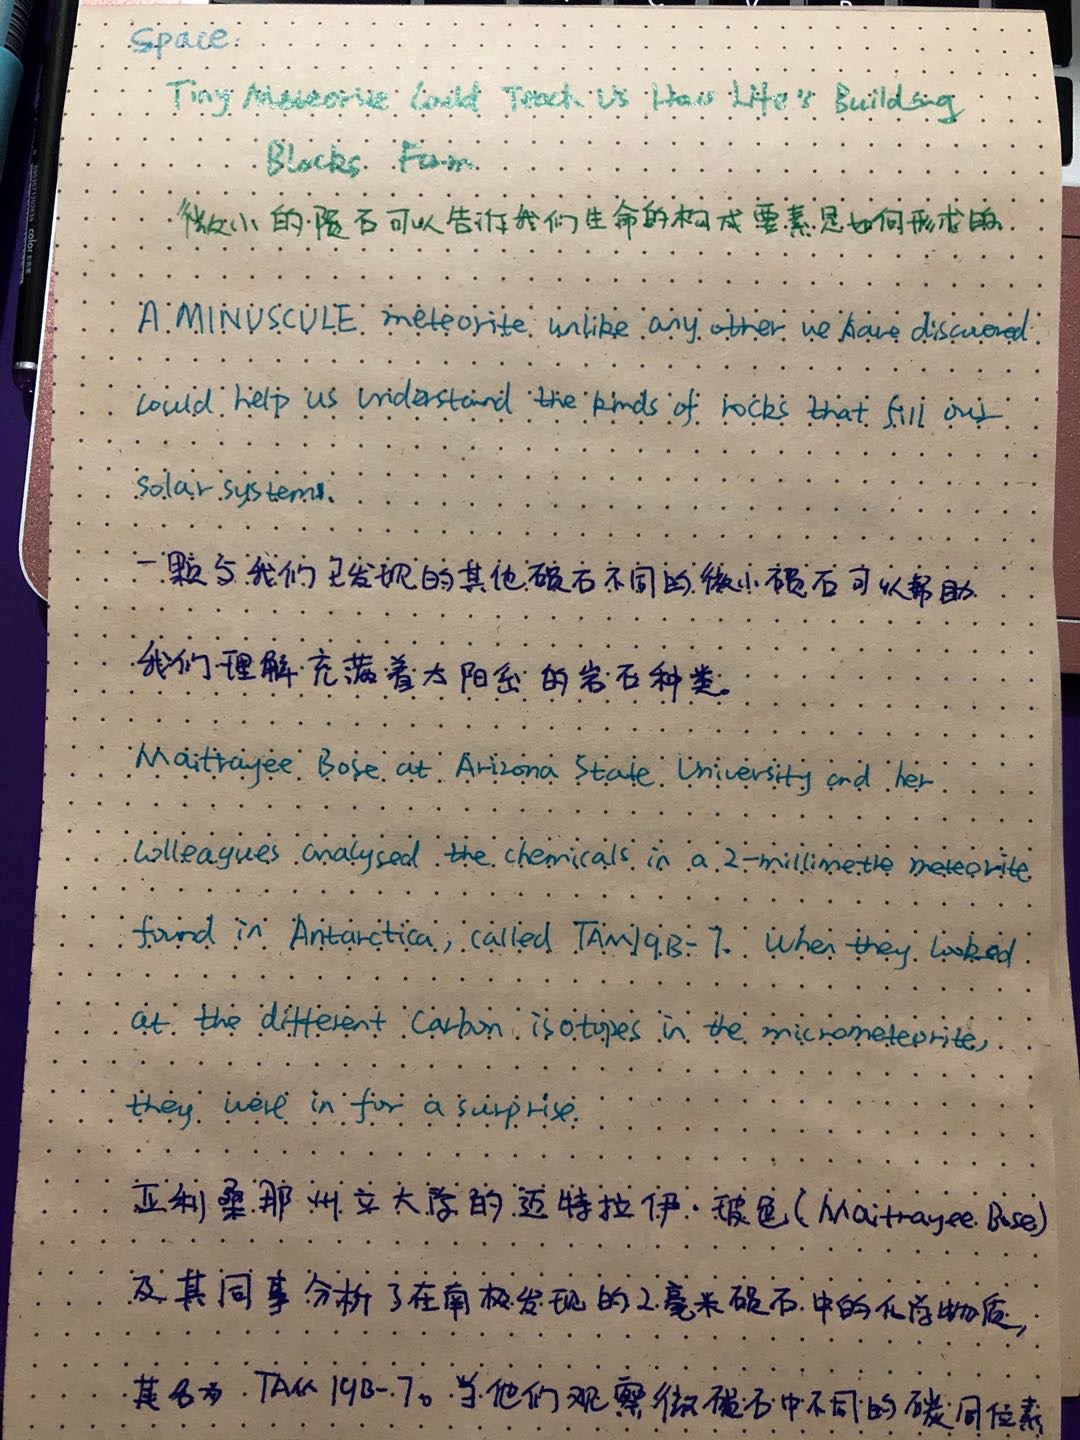 Space.
Tiny Meteorite Could Teach Us How Life's Building
Blocks Form
微小的陨石可以告诉我们生命的构成要素是如何形成的
A MINUSCULE meteorite unlike any other we have discovered
could help us understand the kinds of rocks that fill our
solar system.
一颗与我们已发现的其他陨石不同的微小陨石可以帮助
我们理解充满着太阳系的岩石种类。
Maitrayee Bose at Arizona State University and her
colleagues analysed the chemicals in a 2-millimetre meteorite
found in Antarctica, called TAM19B-7. When they looked
at the different Carbon isotopes in the micrometeorite,
they were in for a surprise.
亚利桑那州立大学的迈特拉伊·玻色(Maitrayee Bose)
及其同事分析了在南极发现的2毫米陨石中的化学物质,
其名为 TAM19B-7。当他们观察微陨石中不同的碳同位素